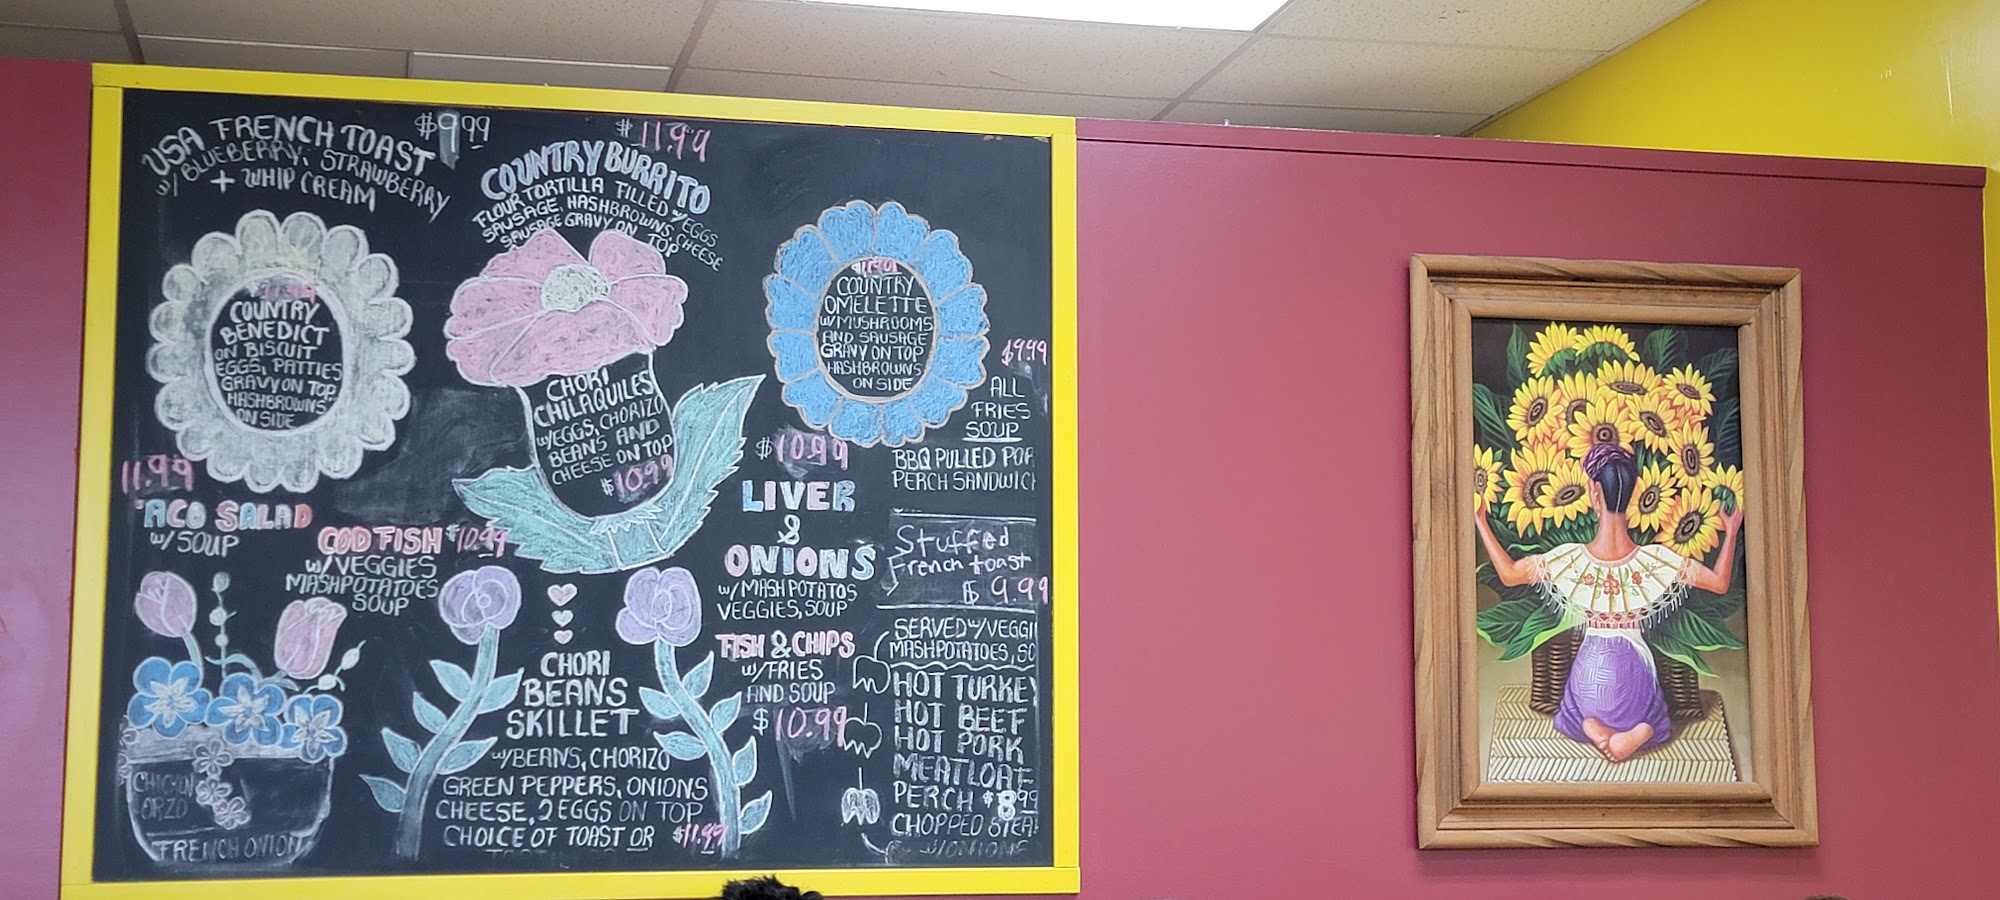 USA FRENCH TOAST $9.99
w/ BLUEBERRY, STRAWBERRY
+ WHIP CREAM
$11.99
COUNTRY BURRITO
FLOUR TORTILLA FILLED w/ EGGS
SAUSAGE, HASHBROWNS, CHEESE
SAUSAGE GRAVY ON TOP
COUNTRY
BENEDICT
ON BISCUIT
EGGS, PATTIES
GRAVY ON TOP
HASHBROWNS
ON SIDE
CHORI
CHILAQUILES
w/EGGS, CHORIZO
BEANS AND
CHEESE ON TOP
$10.99
COUNTRY
OMELETTE
w/ MUSHROOMS
AND SAUSAGE
GRAVY ON TOP
HASHBROWNS
ON SIDE
11.99
ACO SALAD
w/ SOUP
COD FISH $10.99
w/ VEGGIES
MASHPOTATOES
SOUP
CHORI
BEANS
SKILLET
w/BEANS, CHORIZO
GREEN PEPPERS, ONIONS
CHEESE, 2 EGGS ON TOP
CHOICE OF TOAST OR $11.99
$10.99
LIVER
&
ONIONS
w/ MASHPOTATOS
VEGGIES, SOUP
FISH & CHIPS
w/FRIES
AND SOUP
$10.99
$9.99
ALL
FRIES
SOUP
BBQ PULLED POR
PERCH SANDWICH
Stuffed
French toast
$ 9.99
SERVED w/ VEGGI
MASHPOTATOES, SO
HOT TURKEY
HOT BEEF
HOT PORK
MEATLOAF
PERCH $8.99
CHOPPED STEA
w/ONIONS
CHICKEN
ORZO
FRENCH ONION